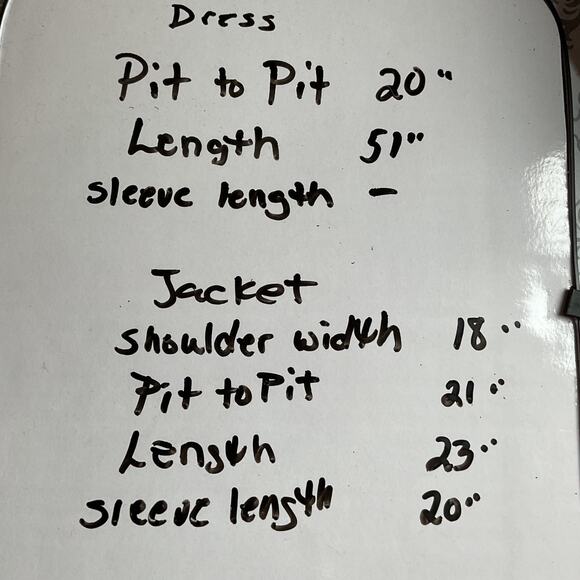 Dress
Pit to Pit 20"
Length 51"
sleeve length -
Jacket
shoulder width 18"
Pit to Pit 21"
Length 23"
sleeve length 20"